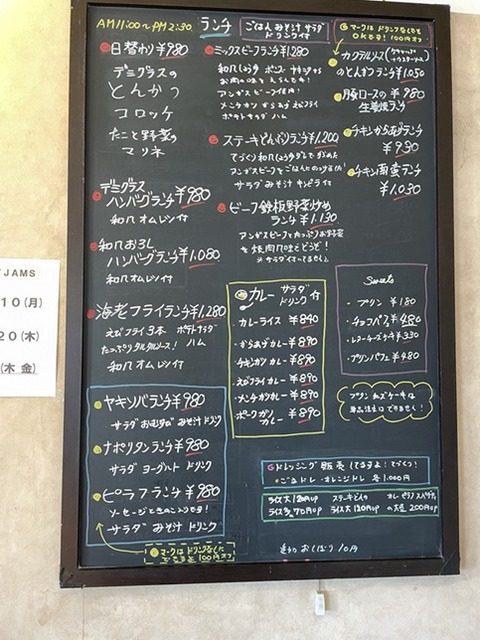 AM11:00〜PM2:30 ランチ
ごはん みそ汁 サラダ
ドリンク付
マークは ドリンクなしでも
OKです! 100円オフ
日替わり ¥980
デミグラスの
とんかつ
コロッケ
たこと野菜の
マリネ
デミグラス
ハンバーグランチ ¥980
和風オムレツ付
和風おろし
ハンバーグランチ ¥1,080
和風オムレツ付
海老フライランチ ¥1,280
えびフライ3本 ポテトサラダ
たっぷりタルタルソース! ハム
和風オムレツ付
ヤキソバランチ ¥980
サラダ おむすび みそ汁 ドリンク
ナポリタンランチ ¥980
サラダ ヨーグルト ドリンク
ピラフランチ ¥980
ソーセージときのこ入りです!
サラダ みそ汁 ドリンク
マークは ドリンクなしでも
できます 100円オフ
ミックスビーフランチ ¥1,280
アンガスビーフ使用!
メンチカツ からあげ エビフライ
ポテトサラダ ハム
ステーキどんぶりランチ ¥1,200
アンガスビーフをごはんにのっけました!
サラダ みそ汁 キンピラ付
ビーフ鉄板野菜炒め
ランチ ¥1,130
アンガスビーフとたっぷりお野菜
を焼肉風味でどうぞ!
※サラダは付いてません
カクテルソース(ケチャップ
+ウスターソース)
のとんかつランチ ¥1,050
豚ロースの ¥980
生姜焼ランチ
チキンからあげランチ
¥930
チキン南蛮ランチ
¥1,030
カレー サラダ
ドリンク付
・カレーライス ¥840
・からあげカレー ¥890
・チキンカツカレー ¥890
・エビフライカレー ¥890
・メンチカツカレー ¥890
・ポークカツ
カレー ¥890
Sweets
・プリン ¥180
・チョコパフェ ¥480
・レアーチーズケーキ ¥330
・プリンパフェ ¥480
プリン チーズケーキは
単品注文はできません!
ドレッシング 販売してますよ! てづくり!
・ごまドレ・オレンジドレ 各1,000円
ライス大120円UP ステーキどんの カレー ピラフ スパゲティ
ライス多70円UP ライス大120円UP の大盛 200円UP
追加 おしぼり 10円
JAMS
10(月)
20(木)
(木 金)